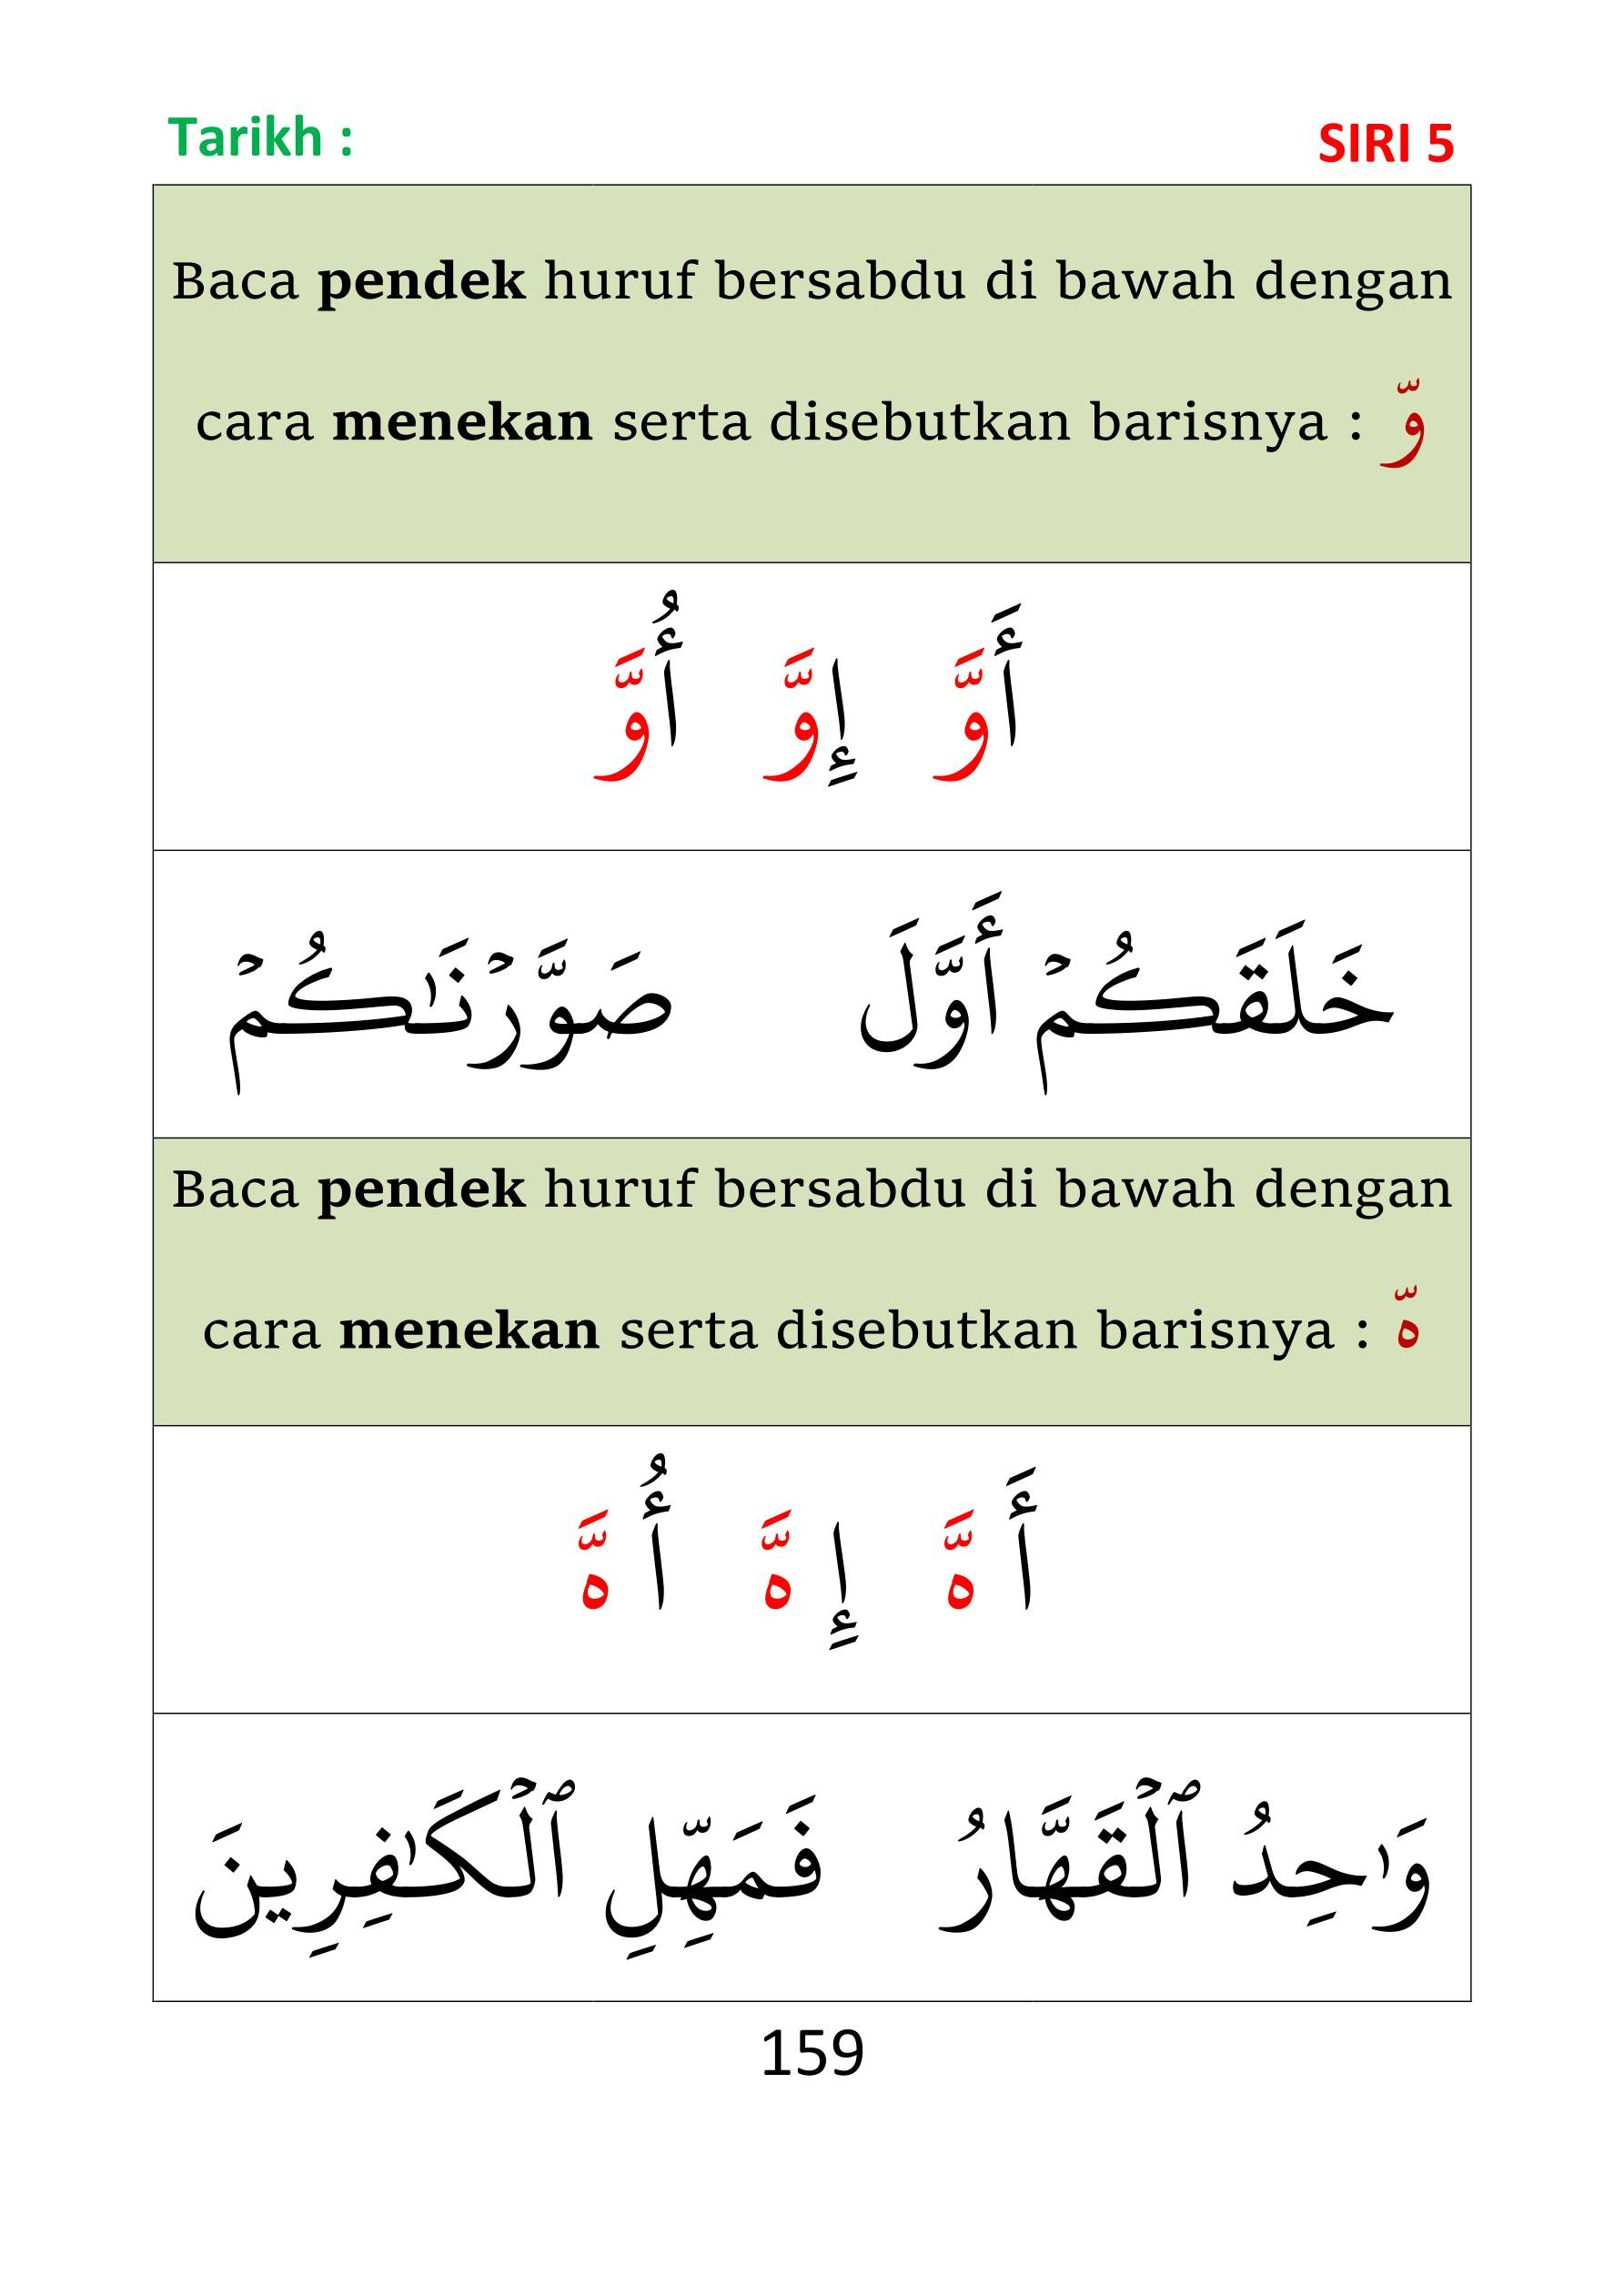 Tarikh :
SIRI 5
Baca pendek huruf bersabdu di bawah dengan
cara menekan serta disebutkan barisnya : وّ
أَوَّ إِوَّ أُوَّ
خَلَقَكُمۡ أَوَّلَ صَوَّرۡنَٰكُمۡ
Baca pendek huruf bersabdu di bawah dengan
cara menekan serta disebutkan barisnya : هّ
أَ هَّ إِ هَّ أُ هَّ
وَٰحِدُ ٱلۡقَهَّارُ فَمَهِّلِ ٱلۡكَٰفِرِينَ
159